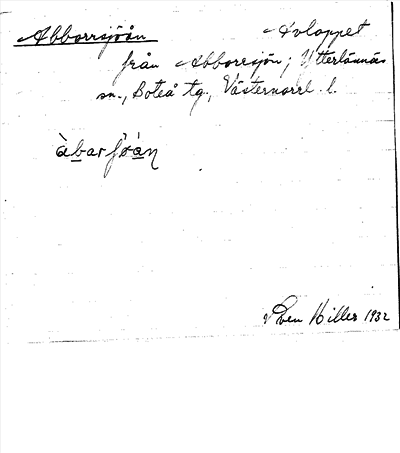 Abborrsjöån Avloppet
från Abborrsjön; Ytterlännäs
sn., Boteå tg., Västernorrl. l.
àbarʃö̀àn
Sven Hillen 1932